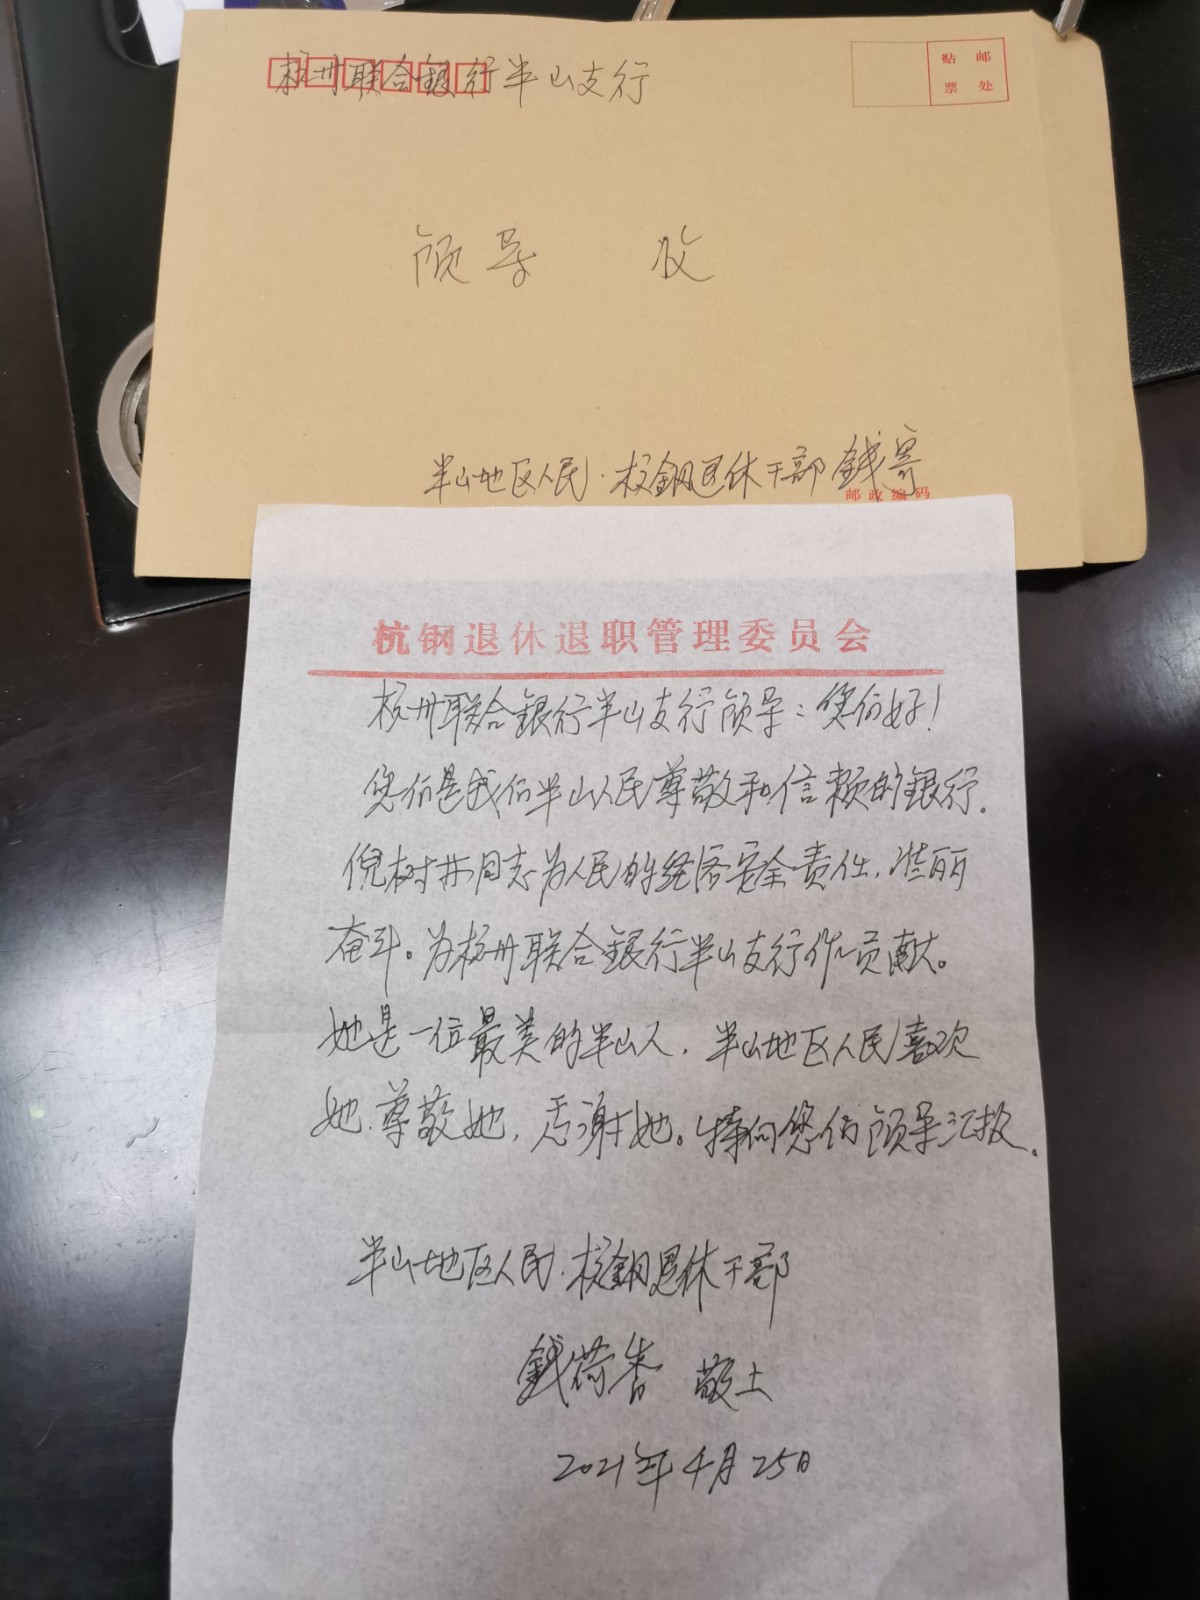 杭州联合银行半山支行
贴邮
票处
领导 收
半山地区人民.杭钢退休干部 钱寄
邮政编码
杭钢退休退职管理委员会
杭州联合银行半山支行领导:您们好!
您们是我们半山人民尊敬和信赖的银行.
倪树同志为人民的经济安全责任,美丽
奋斗。为杭州联合银行半山支行作贡献。
她是一位最美的半山人,半山地区人民喜欢
她.尊敬她,感谢她。特向您们领导汇报.
半山地区人民.杭钢退休干部
钱荷香 敬上
2021年4月25日